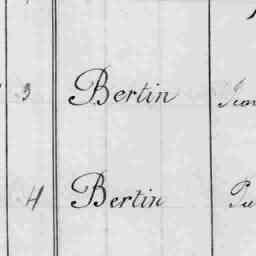 3 Bertin
4 Bertin